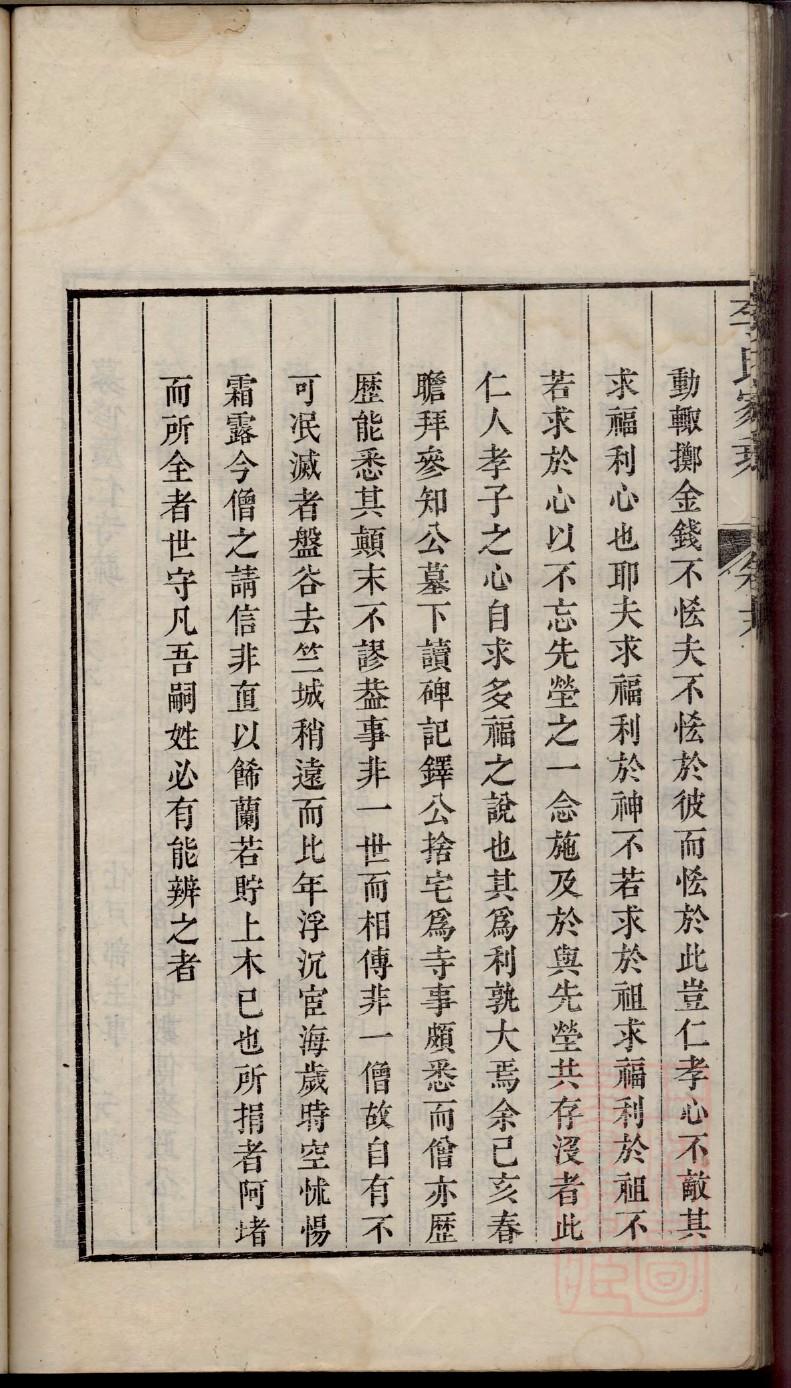 動輒擲金錢不恡夫不恡於彼而恡於此豈仁孝心不敵其
求福利心也耶夫求福利於神不若求於祖求福利於祖不
若求於心以不忘先塋之一念施及於與先塋共存沒者此
仁人孝子之心自求多福之說也其爲利孰大焉余己亥春
瞻拜參知公墓下讀碑記鐸公捨宅爲寺事頗悉而僧亦歷
歷能悉其顛末不謬葢事非一世而相傳非一僧故自有不
可冺滅者盤谷去竺城稍遠而比年浮沉宦海歲時空怵惕
霜露今僧之請信非直以餙蘭若貯上木已也所捐者阿堵
而所全者世守凡吾嗣姓必有能辨之者